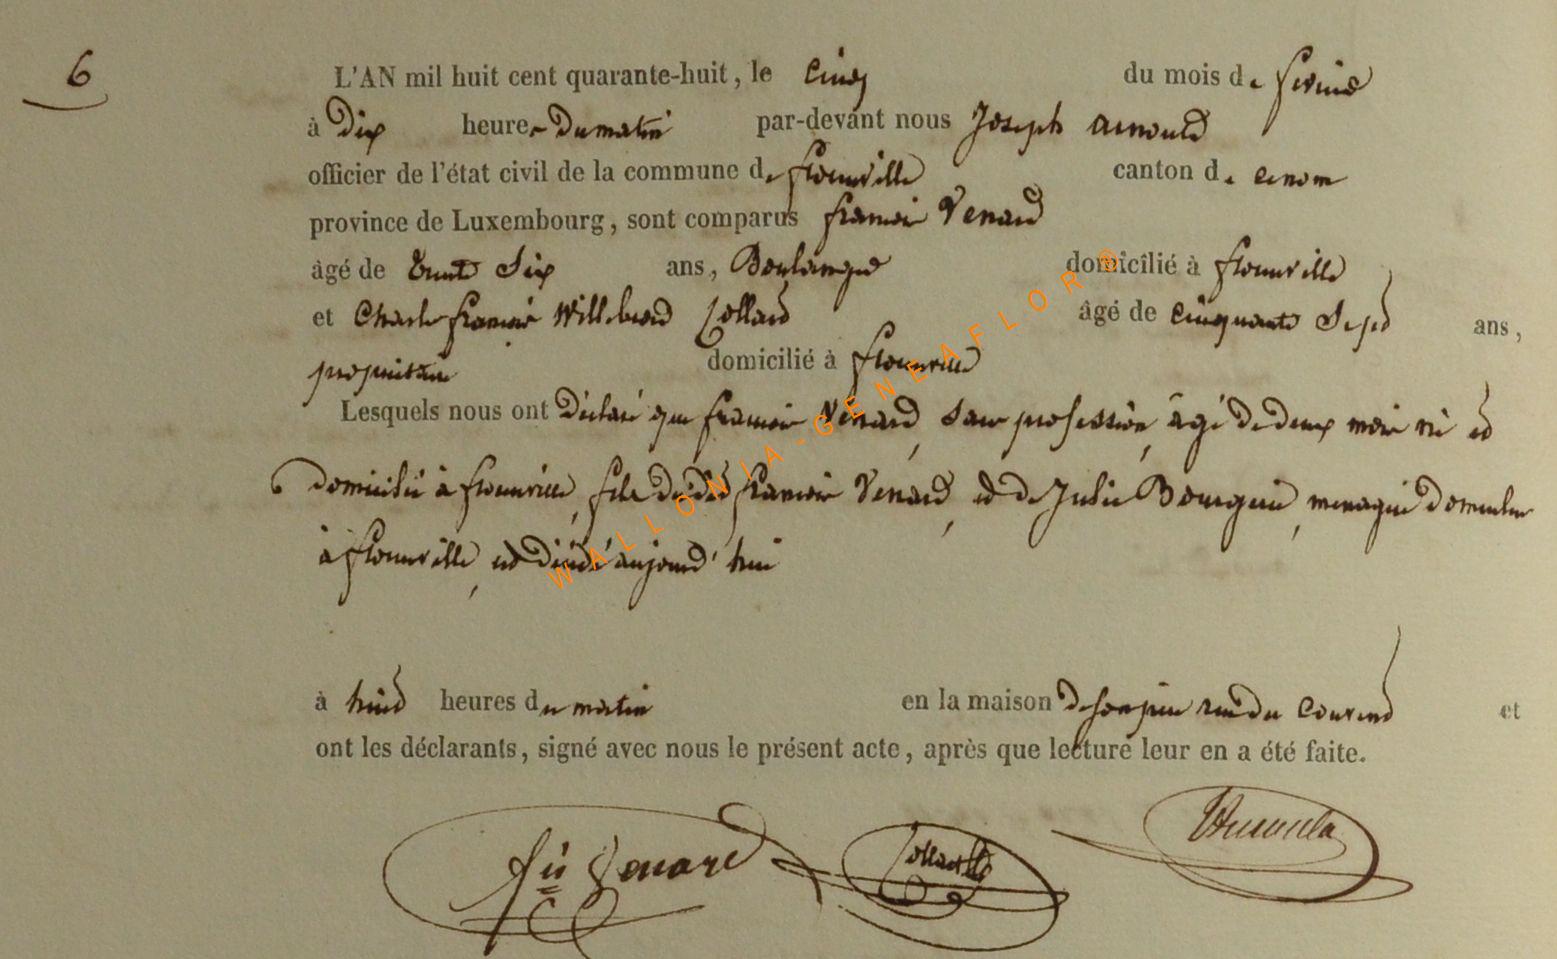 6
L'AN mil huit cent quarante-huit, le cinq du mois de février
à Dix heures du matin par-devant nous Joseph Arnould
officier de l'état civil de la commune de florenville canton de
province de Luxembourg, sont comparus françois Venard
âgé de trente Six ans, Boulanger domicilié à florenville
et Charles françois Willebrord Collard âgé de cinquante Sept ans,
propriétaire domicilié à florenville
Lesquels nous ont Déclaré que françois Venard, Sans profession, âgé de deux mois né et
domicilié à florenville, fils dudit françois Venard, et de Julie Bourguin, menagère domiciliée
à florenville, est décédé aujourd'hui
à huit heures du matin en la maison de son père rue du Couvent et
ont les déclarants, signé avec nous le présent acte, après que lecture leur en a été faite.
fçis Venard Collard
WALLONIA-GENEAFLOR ®